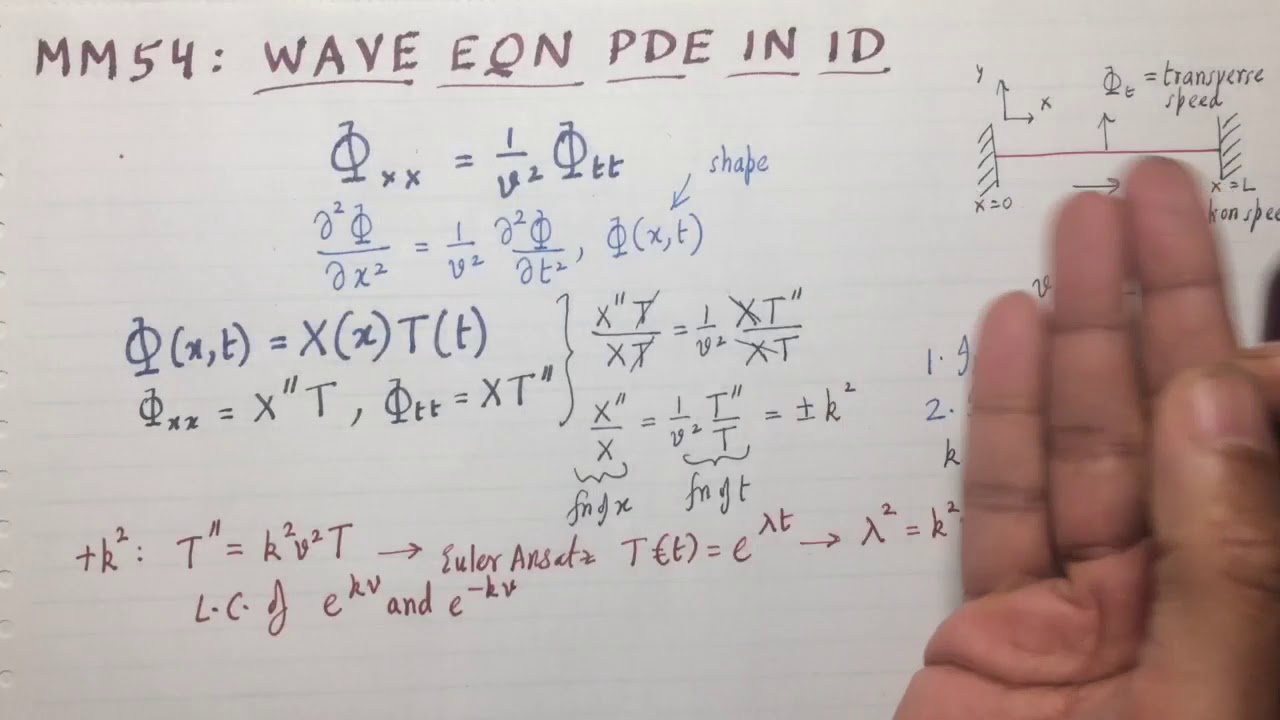 MM54: WAVE EQN PDE IN 1D
Φxx = 1/v² Φtt
shape
∂²Φ/∂x² = 1/v² ∂²Φ/∂t², Φ(x,t)
Φ(x,t) = X(x)T(t)
Φxx = X"T, Φtt = XT"
X"T/XT = 1/v² XT"/XT
X"/X = 1/v² T"/T = ±k²
fn of x
fn of t
+k²: T" = k²v²T → Euler Ansatz T(t) = e^λt → λ² = k²
L.C. of e^kv and e^-kv
y
x
Φt = transverse
speed
x=0
x=L
v
1.
2.
k